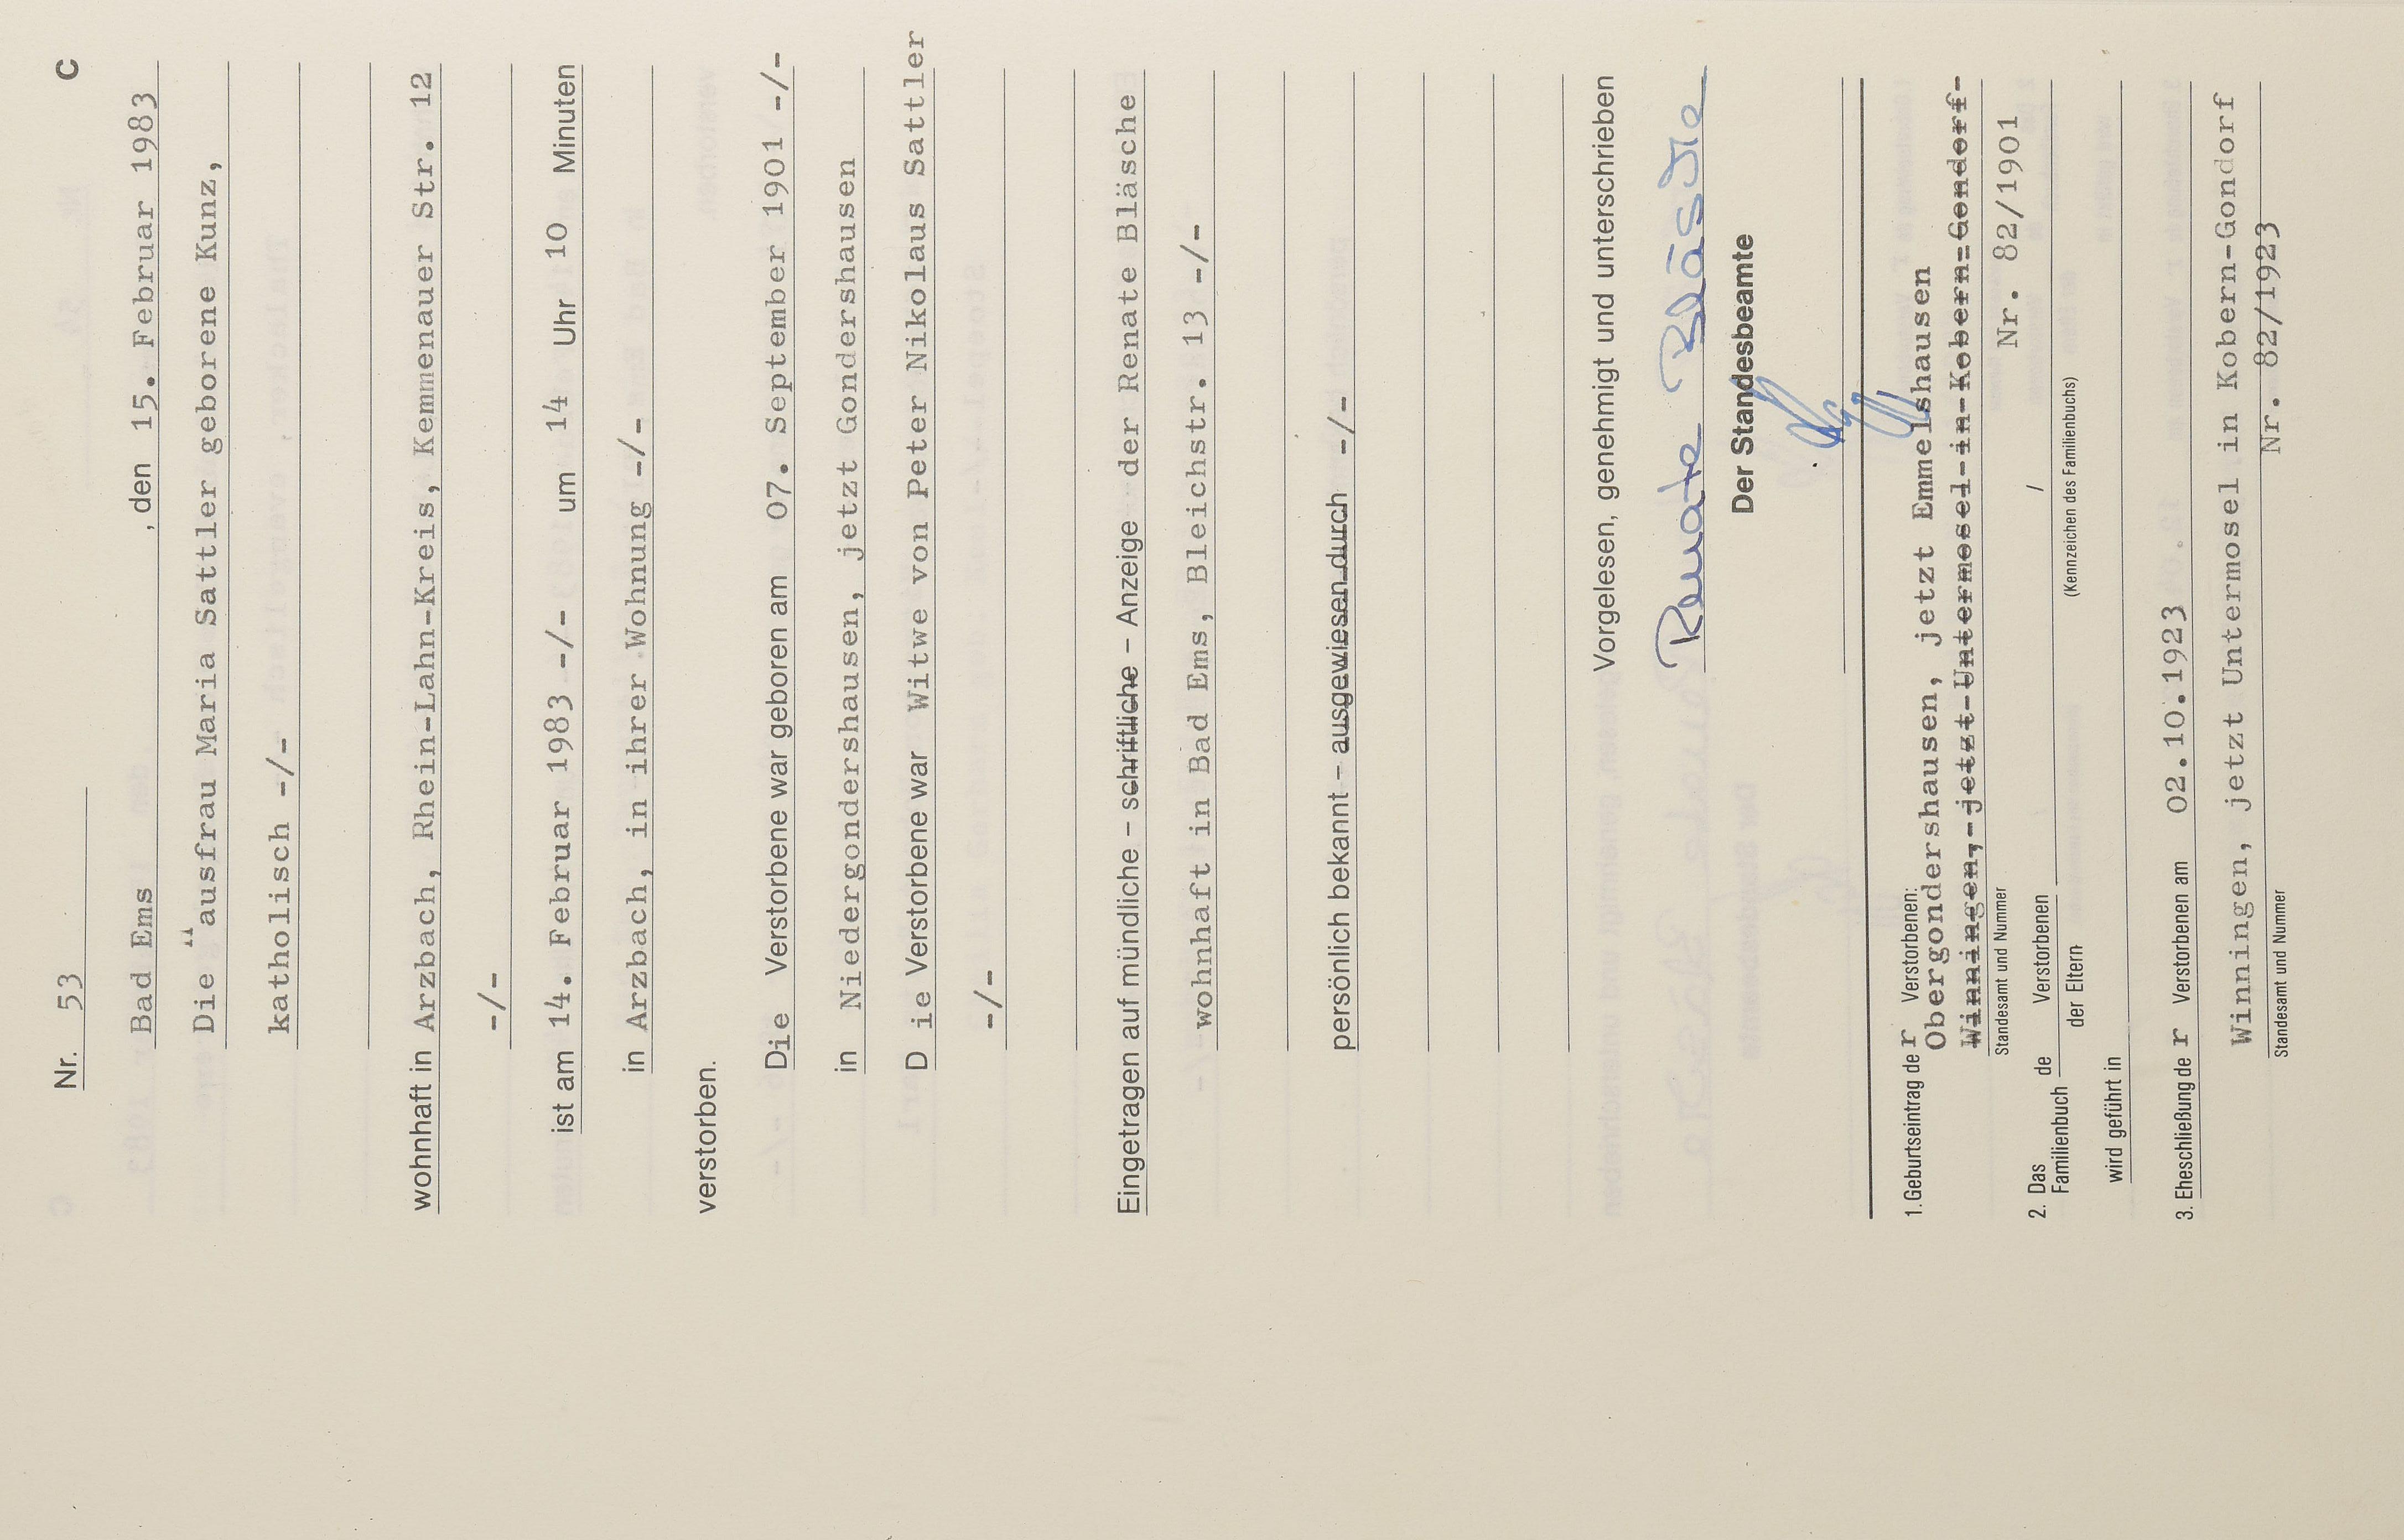 C
Nr. 53
Bad Ems , den 15. Februar 1983
Die "ausfrau Maria Sattler geborene Kunz,
katholisch -/-
wohnhaft in Arzbach, Rhein-Lahn-Kreis, Kemmenauer Str. 12
-/-
ist am 14. Februar 1983 -/- um 14 Uhr 10 Minuten
in Arzbach, in ihrer Wohnung -/-
verstorben.
Die Verstorbene war geboren am 07. September 1901 -/-
in Niedergondershausen, jetzt Gondershausen
D ie Verstorbene war Witwe von Peter Nikolaus Sattler
-/-
Eingetragen auf mündliche – schriftliche – Anzeige der Renate Bläsche
wohnhaft in Bad Ems, Bleichstr. 13 -/-
persönlich bekannt – ausgewiesen durch -/-
Vorgelesen, genehmigt und unterschrieben
Renate Bläsche
Der Standesbeamte
1. Geburtseintrag der Verstorbenen:
Obergondershausen, jetzt Emmelshausen
Winningen, jetzt Untermosel in Kobern-Gondorf
Nr. 82/1901
Standesamt und Nummer
2. Das Familienbuch de Verstorbenen /
der Eltern (Kennzeichen des Familienbuchs)
wird geführt in
3. Eheschließung der Verstorbenen am 02.10.1923
Winningen, jetzt Untermosel in Kobern-Gondorf
Nr. 82/1923
Standesamt und Nummer